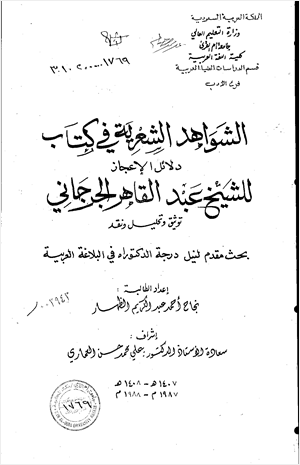 المملكة العربية السعودية
وزارة التعليم العالي
جامعة أم القرى
كلية اللغة العربية
قسم الدراسات العليا العربية
فرع الأدب
٣٠١٠٢٠٠٠٠١٧٦٩
الشواهد الشعرية في كتاب
دلائل الإعجاز
للشيخ عبد القاهر الجرجاني
توثيق وتحليل ونقد
بحث مقدم لنيل درجة الدكتوراه في البلاغة العربية
إعداد الطالبة :
نجاح أحمد عبد الكريم الظهار
إشراف :
سعادة الأستاذ الدكتور : علي محمد حسن العماري
١٤٠٧ هـ - ١٤٠٨ هـ
١٩٨٧ م - ١٩٨٨ م
١٧٦٩